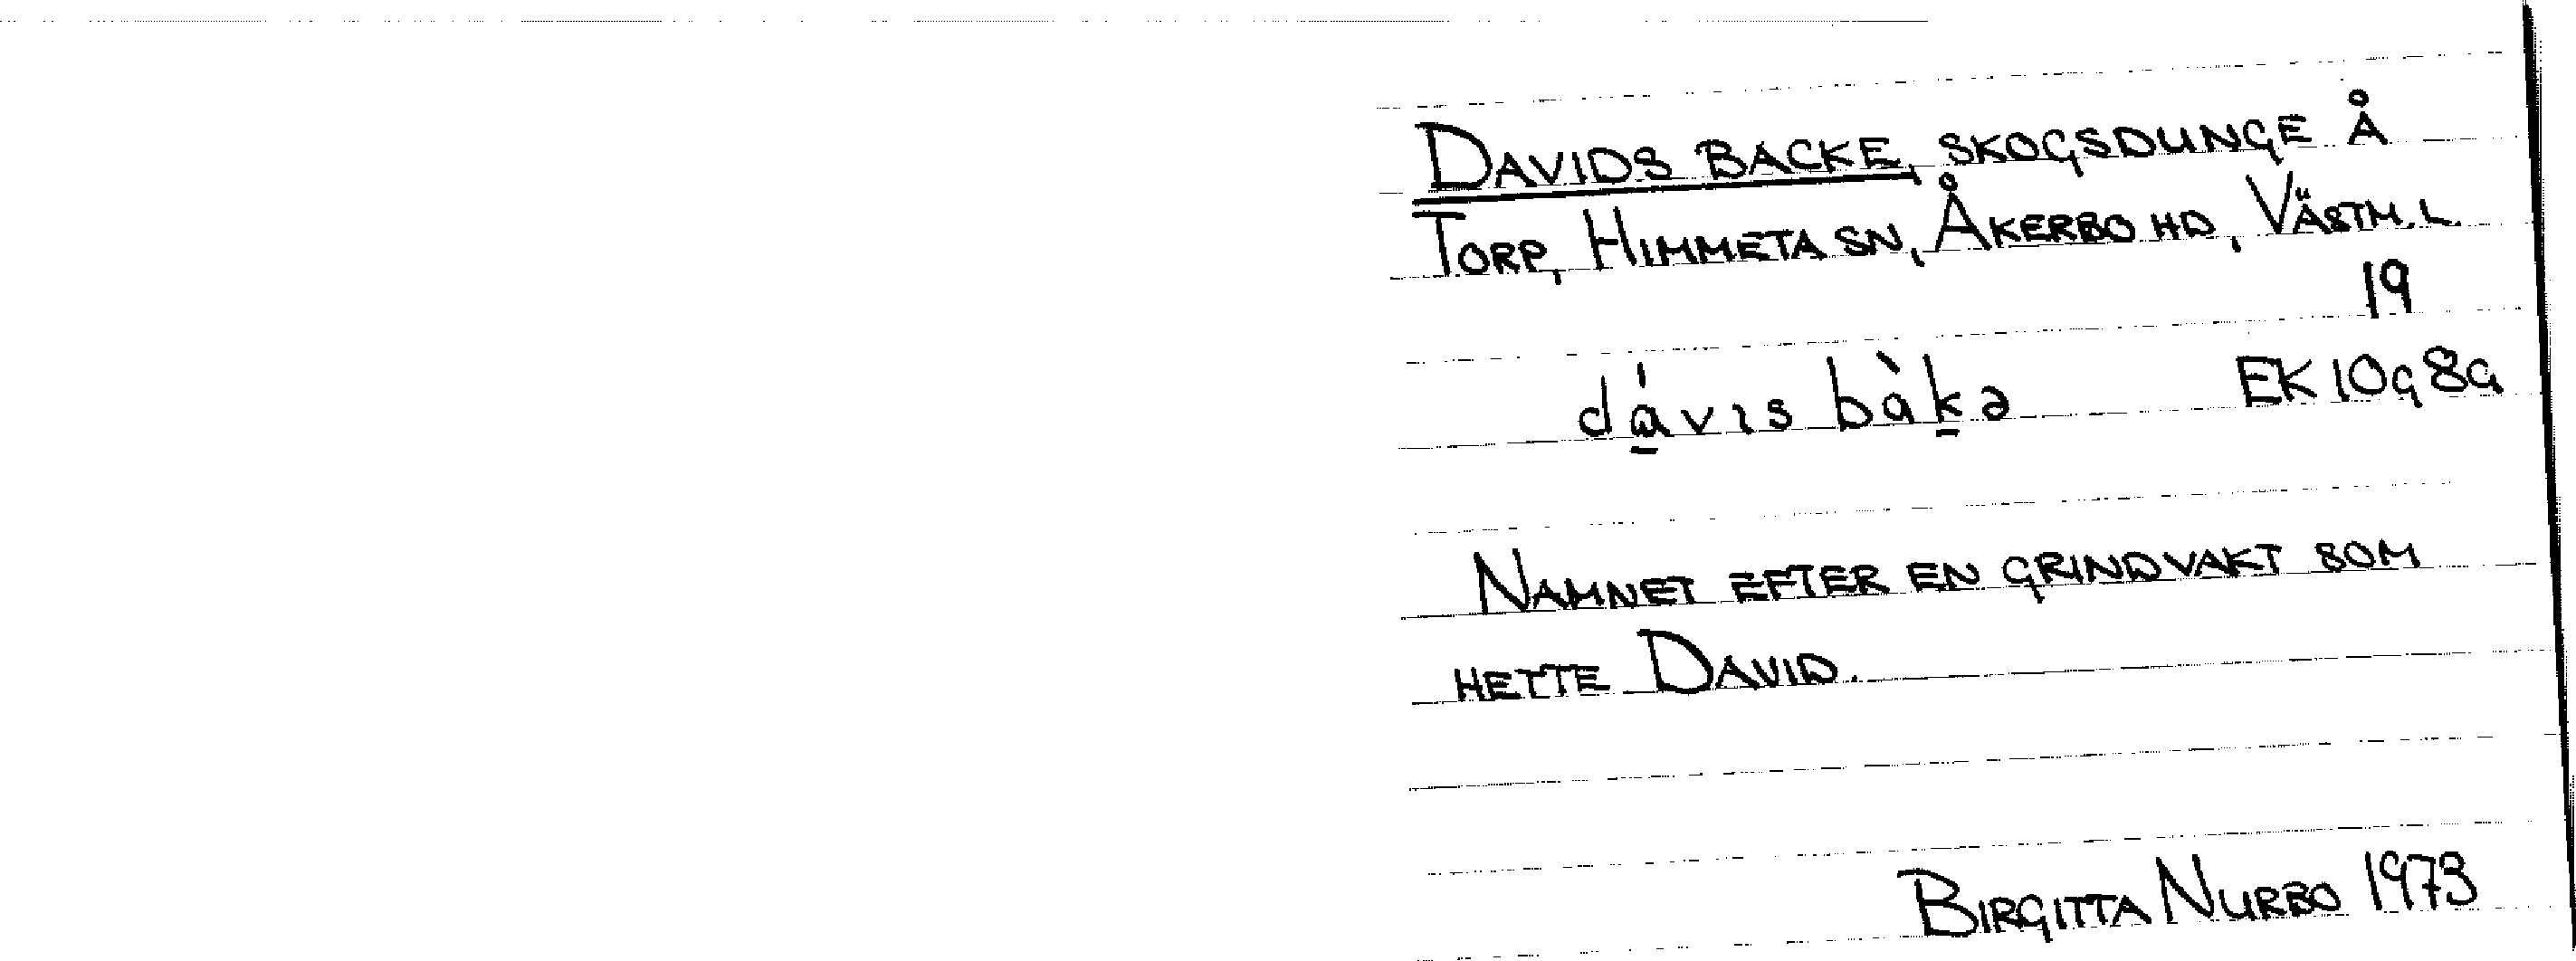 DAVIDS BACKE, SKOGSDUNGE Å
TORP, HIMMETA SN, ÅKERBO HD, VÄSTM. L.
19
dá̱vıs bàḵə EK 10g 8a
NAMNET EFTER EN GRINDVAKT SOM
HETTE DAVID.
BIRGITTA NURBO 1973